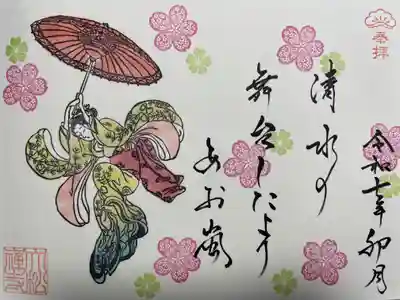 奉拝
令和七年 卯月
清水の
舞台したより
あお嵐